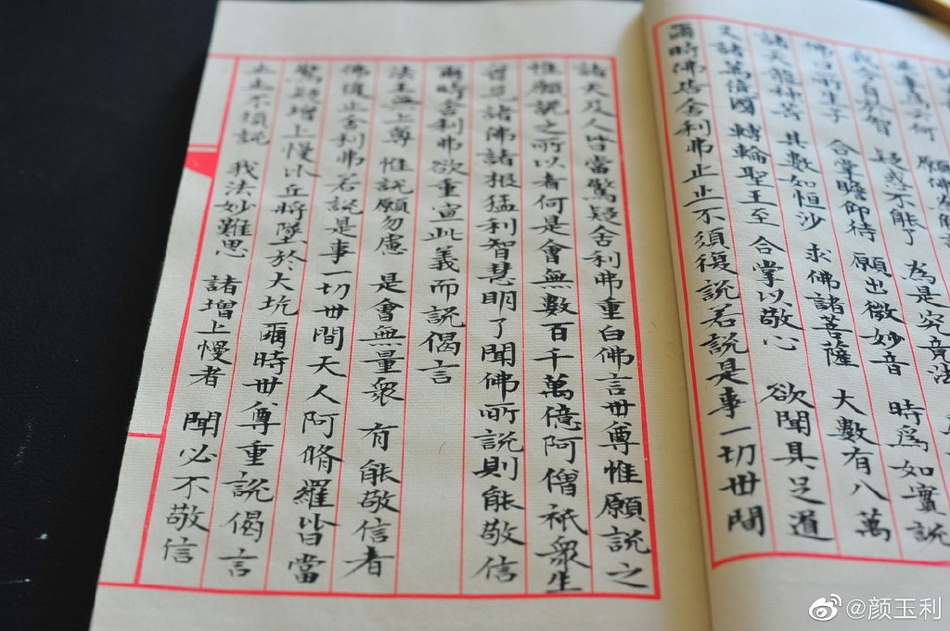 事為云何 願佛
我今自於智 疑惑不能了 為是究竟法
佛口所生子 合掌瞻仰待 願出微妙音 時為如實說
諸天龍神等 其數如恒沙 求佛諸菩薩 大數有八萬
又諸萬億國 轉輪聖王至 合掌以敬心 欲聞具足道
爾時佛告舍利弗止止不須復說若說是事一切世間
諸天及人皆當驚疑舍利弗重白佛言世尊惟願說之
惟願說之所以者何是會無數百千萬億阿僧祇眾生
曾見諸佛諸根猛利智慧明了聞佛所說則能敬信
爾時舍利弗欲重宣此義而說偈言
法王無上尊 惟說願勿慮 是會無量眾 有能敬信者
佛復止舍利弗若說是事一切世間天人阿脩羅皆當
驚疑增上慢比丘將墜於大坑爾時世尊重說偈言
止止不須說 我法妙難思 諸增上慢者 聞必不敬信
@颜玉利